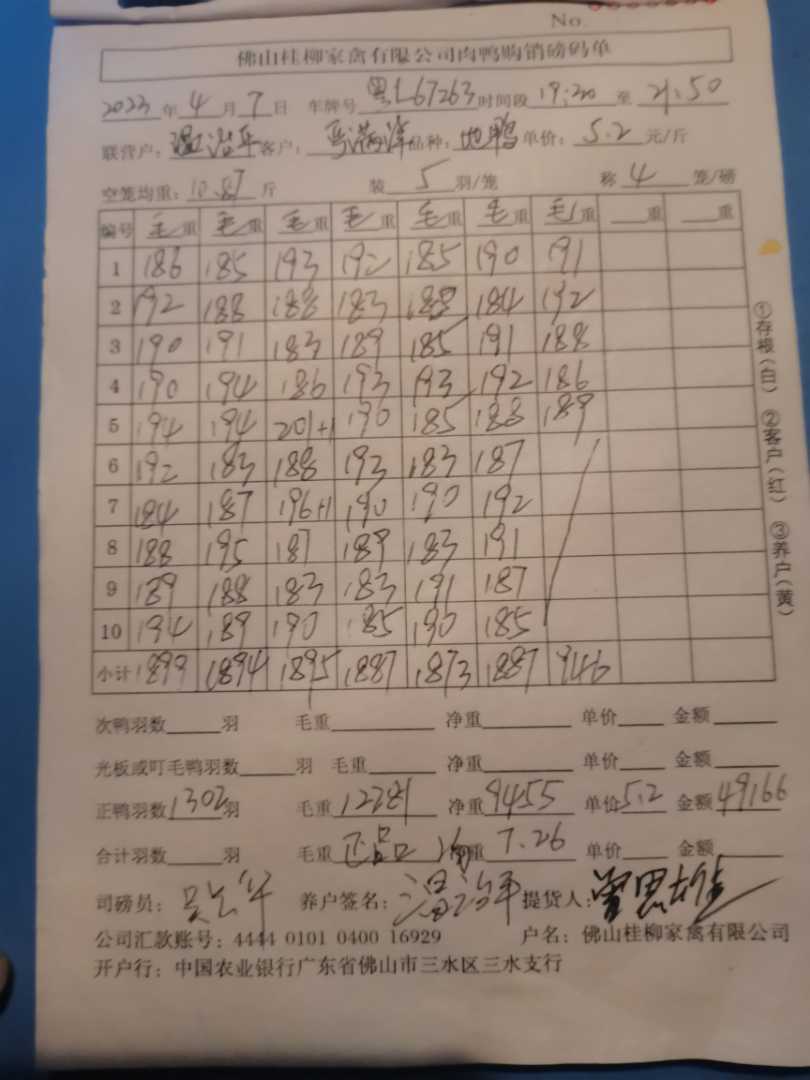 No.
佛山桂柳家禽有限公司肉鸭购销磅码单
2023 年 4 月 7 日 车牌号 粤L67263 时间段 19:20 至 21:50
联营户: 温治平 客户: 满洋 品种: 地鸭 单价: 5.2 元/斤
空笼均重: 10.87 斤 装 5 羽/笼 称 4 笼/磅
编号 毛重 毛重 毛重 毛重 毛重 毛重 毛重 重 重
1 186 185 193 192 185 190 191
2 192 188 188 183 188 184 192
3 190 191 183 189 185 191 188
4 190 194 186 193 193 192 186
5 194 194 201+1 190 185 188 189
6 192 183 188 193 183 187
7 184 187 196+1 190 190 192
8 188 195 187 189 183 191
9 189 188 183 183 191 187
10 194 189 190 185 190 185
小计 1899 1894 1895 1887 1873 1887 946
次鸭羽数 羽 毛重 净重 单价 金额
光板或叮毛鸭羽数 羽 毛重 净重 单价 金额
正鸭羽数 1302 羽 毛重 12281 净重 9455 单价 5.2 金额 49166
合计羽数 羽 毛重 正品 均重 7.26 单价 金额
司磅员: 养户签名: 温治平 提货人:
公司汇款账号: 4444 0101 0400 16929 户名: 佛山桂柳家禽有限公司
开户行: 中国农业银行广东省佛山市三水区三水支行
①存根(白) ②客户(红) ③养户(黄)